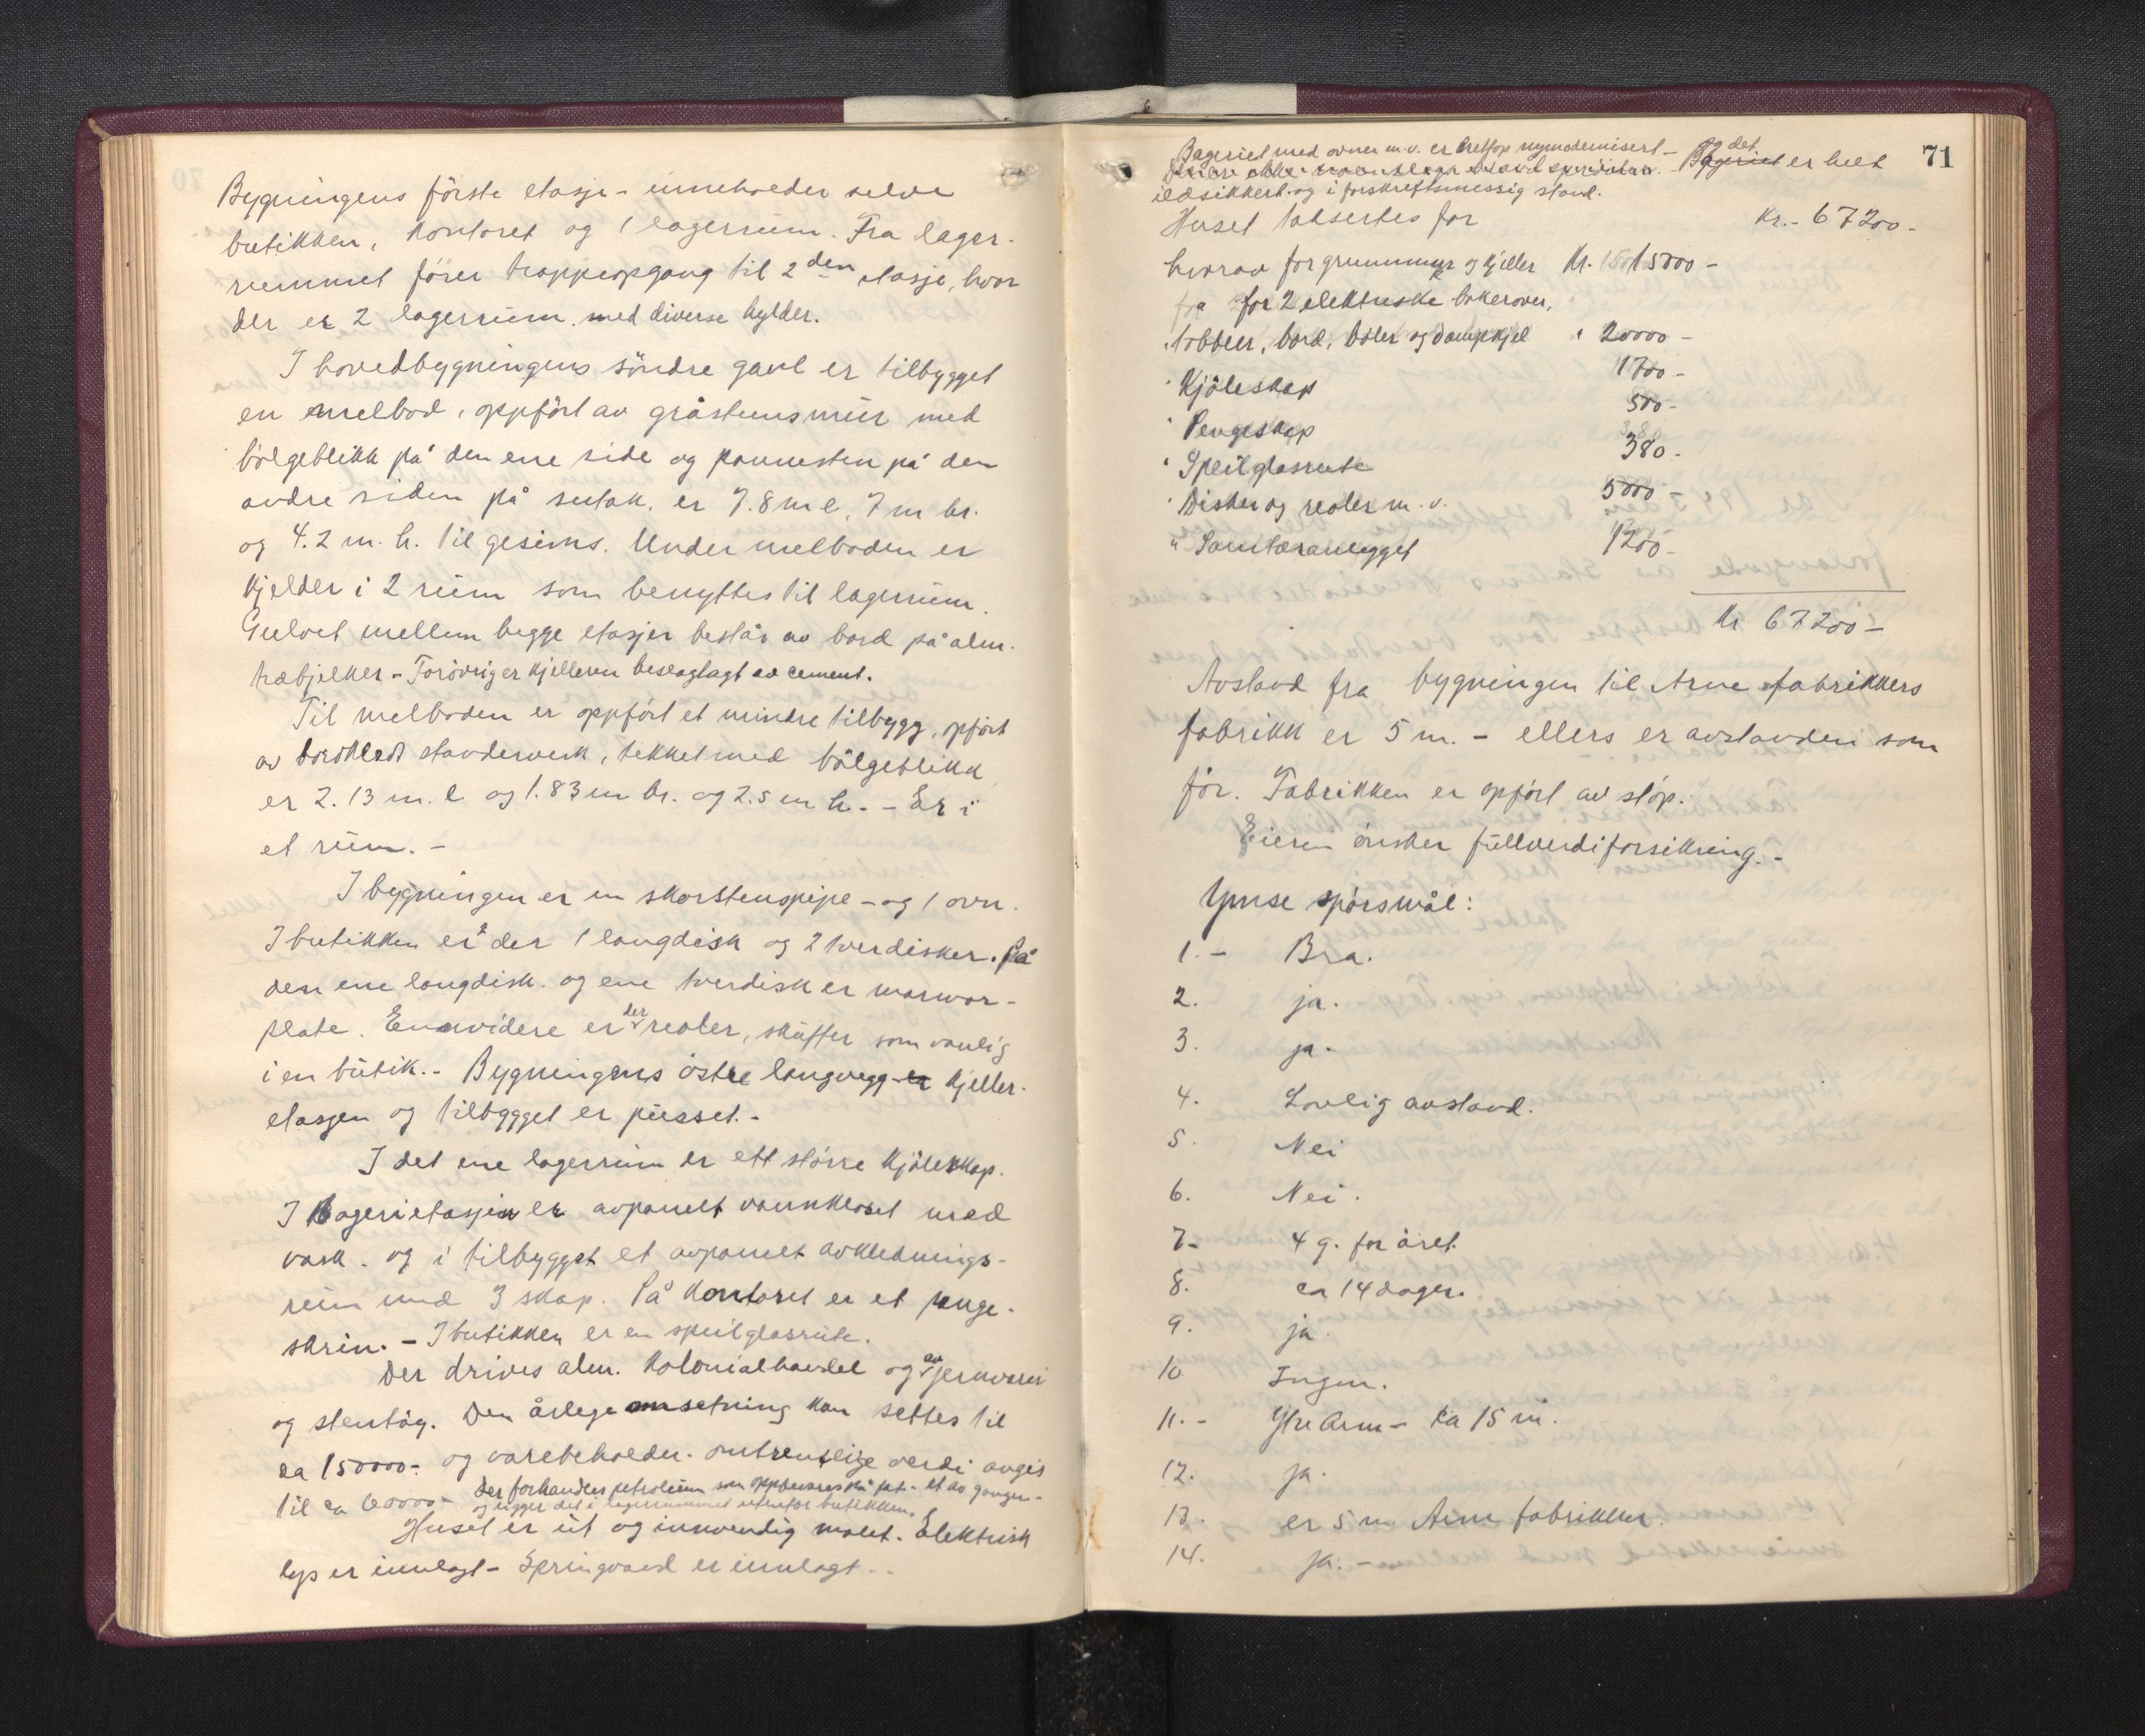 Bygningens förste etasje – inneholder selve
butikken, kontoret og 1 lagerrum. Fra lager-
rummet förer trappeopgang til 2den etasje, hvor
der er 2 lagerrum med diverse hylder.
I hovedbygningens söndre gavl er tilbygget
en melbod, oppfört av gråstensmur med
bölgeblikk på den ene side og pannesten på den
andre siden på sutak, er 7.8 m l, 7 m br.
og 4.2 m. h. til gesims. Under melboden er
kjelder i 2 rum som benyttes til lagerrum.
Gulvet mellem begge etasjer består av bord på alm.
træbjelker – Forövrig er kjelleren beslaglagt av cement.
Til melboden er oppfört et mindre tilbygg, opfört
av bordkledt standerverk, tekket med bölgeblikk
er 2.13 m. l og 1.83 m br. og 2.5 m h. – Er i
et rum. –
I bygningen er en skorstenspipe – og 1 ovn.
I butikken er der 1 langdisk og 2 tverdisker. På
den ene langdisk og ene tverdisk er marmor-
plate. Envidere er der reoler, skuffer som vanlig
i en butik. – Bygningens östre langvegg er kjeller-
etasjen og tilbygget er pusset. –
I det ene lagerrum er ett större kjöleskap.
I Bagerietasjen er avpanelt vannkloset med
vask. og i tilbygget et avpanelt avklednings-
rum med 3 skap. På kontoret er et penge-
skrin. – I butikken er en speilglasrute.
Der drives alm. kolonialhandel og av jernvarer
og stentöy. Den årlege omsetning kan settes til
ca 150000- og varebeholder. omtrentlige verdi angis
til ca 60000 – Der forhandles petroleum som oppbevares på fat – et av gangen –
og ligger det i lagerrummet utenfor butikken.
Huset er ut og innvendig malet. Elektrisk
lys er innlagt – Springvand er innlagt. –
71
Bageriet med ovner m.v. er nymodernisert – og det Bageriet er helt
ildsikkert og i forskriftsmessig stand.
Huset taksertes for Kr. – 67200 –
hvorav for grunnmur og kjeller Kr. 15000 –
for 2 elektriske bakerovner,
bord, og dampkjel " 20000 –
" Kjöleskap 1700 –
" Pengeskap 500 –
" Speilglasrute 380 –
" Disker og reoler m. v. 5000 –
" Sanitæranlegget 1200 –
Kr 67200 –
Avstand fra bygningen til Arne fabrikkers
fabrikk er 5 m. – ellers er avstanden som
för. Fabrikken er opfört av stöp.
Eieren önsker fullverdiforsikring. –
Ymse spörsmål:
1. – Bra.
2. ja.
3. ja.
4. Lovlig avstand.
5. Nei
6. Nei.
7 – 4 g. for året.
8. ca 14 dager.
9. ja.
10 Ingen.
11. – Ytre Arna – ca 15 m.
12. ja.
13. er 5 m Arne fabrikker.
14. ja. –